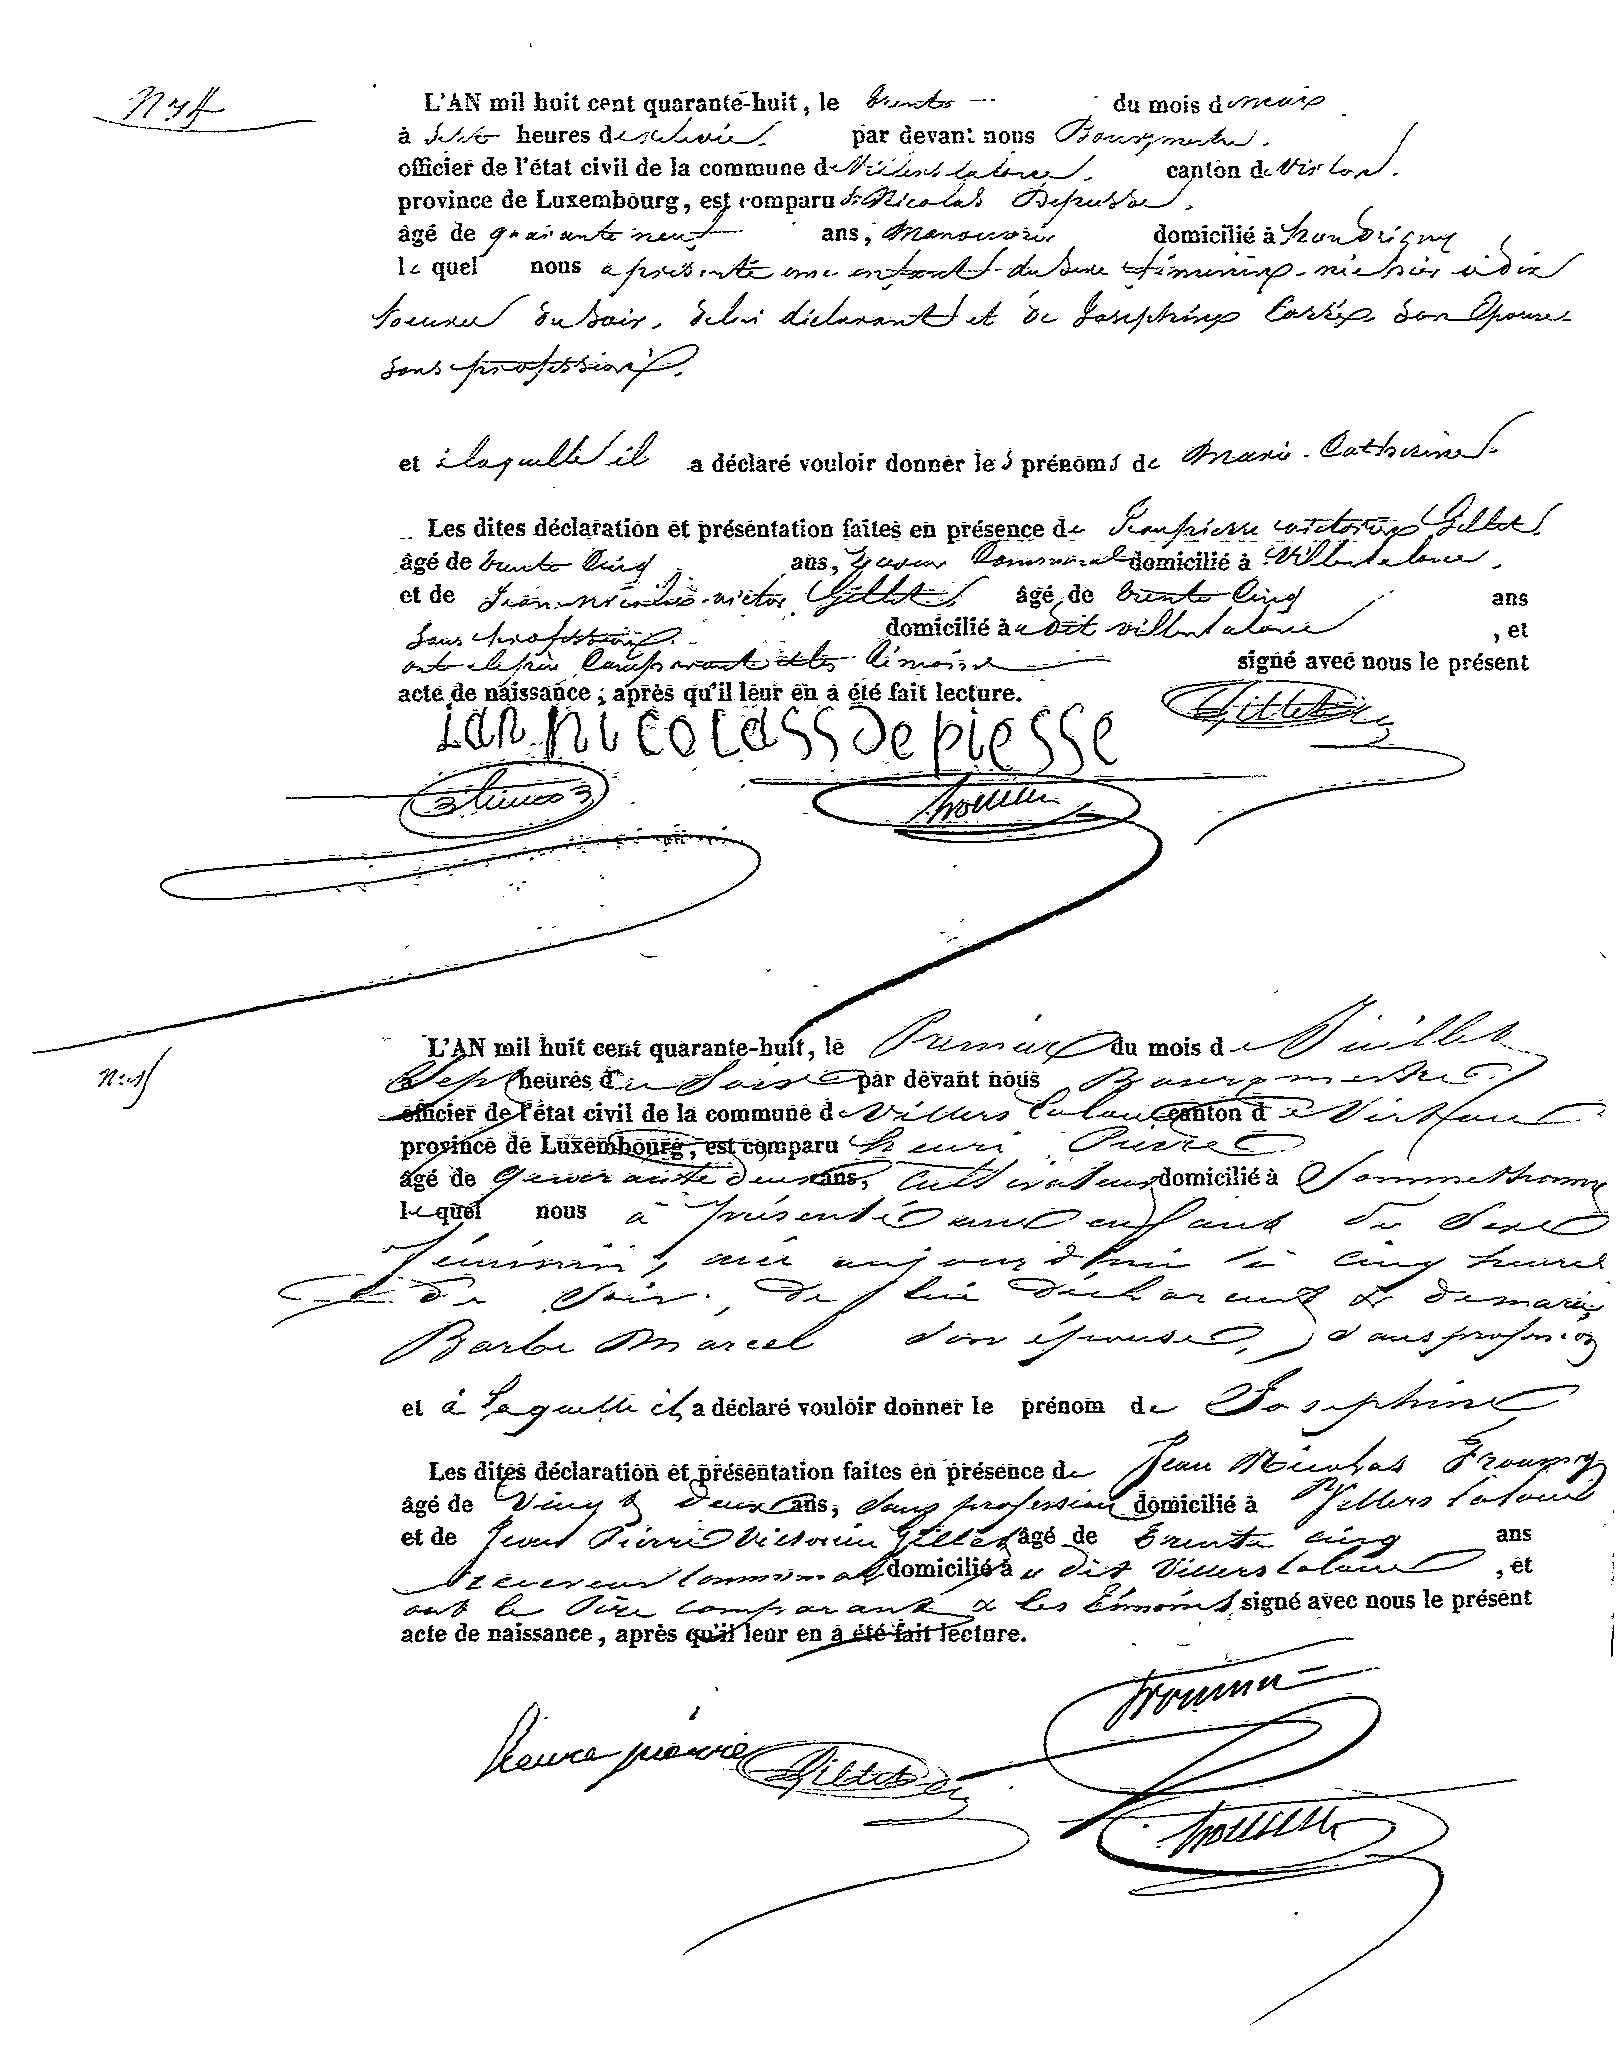 L'AN mil huit cent quarante-huit, le trente du mois de mai
à sept heures de relevée. par devant nous Bourgmestre.
officier de l'état civil de la commune de Villers la loue. canton de Virton.
province de Luxembourg, est comparu Nicolas Depiesse.
âgé de quarante neuf ans, Manouvrier domicilié à houdrigny
le quel nous a présenté une enfant du sexe féminin, née hier à dix
heures du soir, de lui déclarant et de Joséphine son Epouse
sans profession.
et à laquelle il a déclaré vouloir donner les prénoms de Marie-Catherine.
Les dites déclaration et présentation faites en présence de Jean pierre victorin Gillet,
âgé de trente cinq ans, receveur Communal domicilié à Villers la loue,
et de Jean Nicolas victor Gillet, âgé de trente Cinq ans
sans profession domicilié à u dit villers la loue, et
ont le père Comparant et les témoins signé avec nous le présent
acte de naissance ; après qu'il leur en a été fait lecture.
ian nicolass depiesse
Gillet
N° 5
L'AN mil huit cent quarante-huit, le Premier du mois de Juillet
à Sept heures du Soir par devant nous Bourgmestre
officier de l'état civil de la commune de Villers la loue canton de Virton
province de Luxembourg, est comparu henri Pierre
âgé de quarante deux ans, Cultivateur domicilié à Sommethonne
le quel nous à présenté une enfant du Sexe
féminin, née aujourd'hui à cinq heures
du Soir, de lui déclarant & de marie
Barbe Marcel Son épouse, sans profession
et à laquelle il a déclaré vouloir donner le prénom de Joséphine
Les dites déclaration et présentation faites en présence de Jean Nicolas
âgé de Vingt deux ans, sans profession domicilié à Villers la loue
et de Jean Pierre Victorin Gillet âgé de trente cinq ans
receveur Communal domicilié à u dit Villers la loue, et
ont le Père comparant & les témoins signé avec nous le présent
acte de naissance, après qu'il leur en a été fait lecture.
Gillet